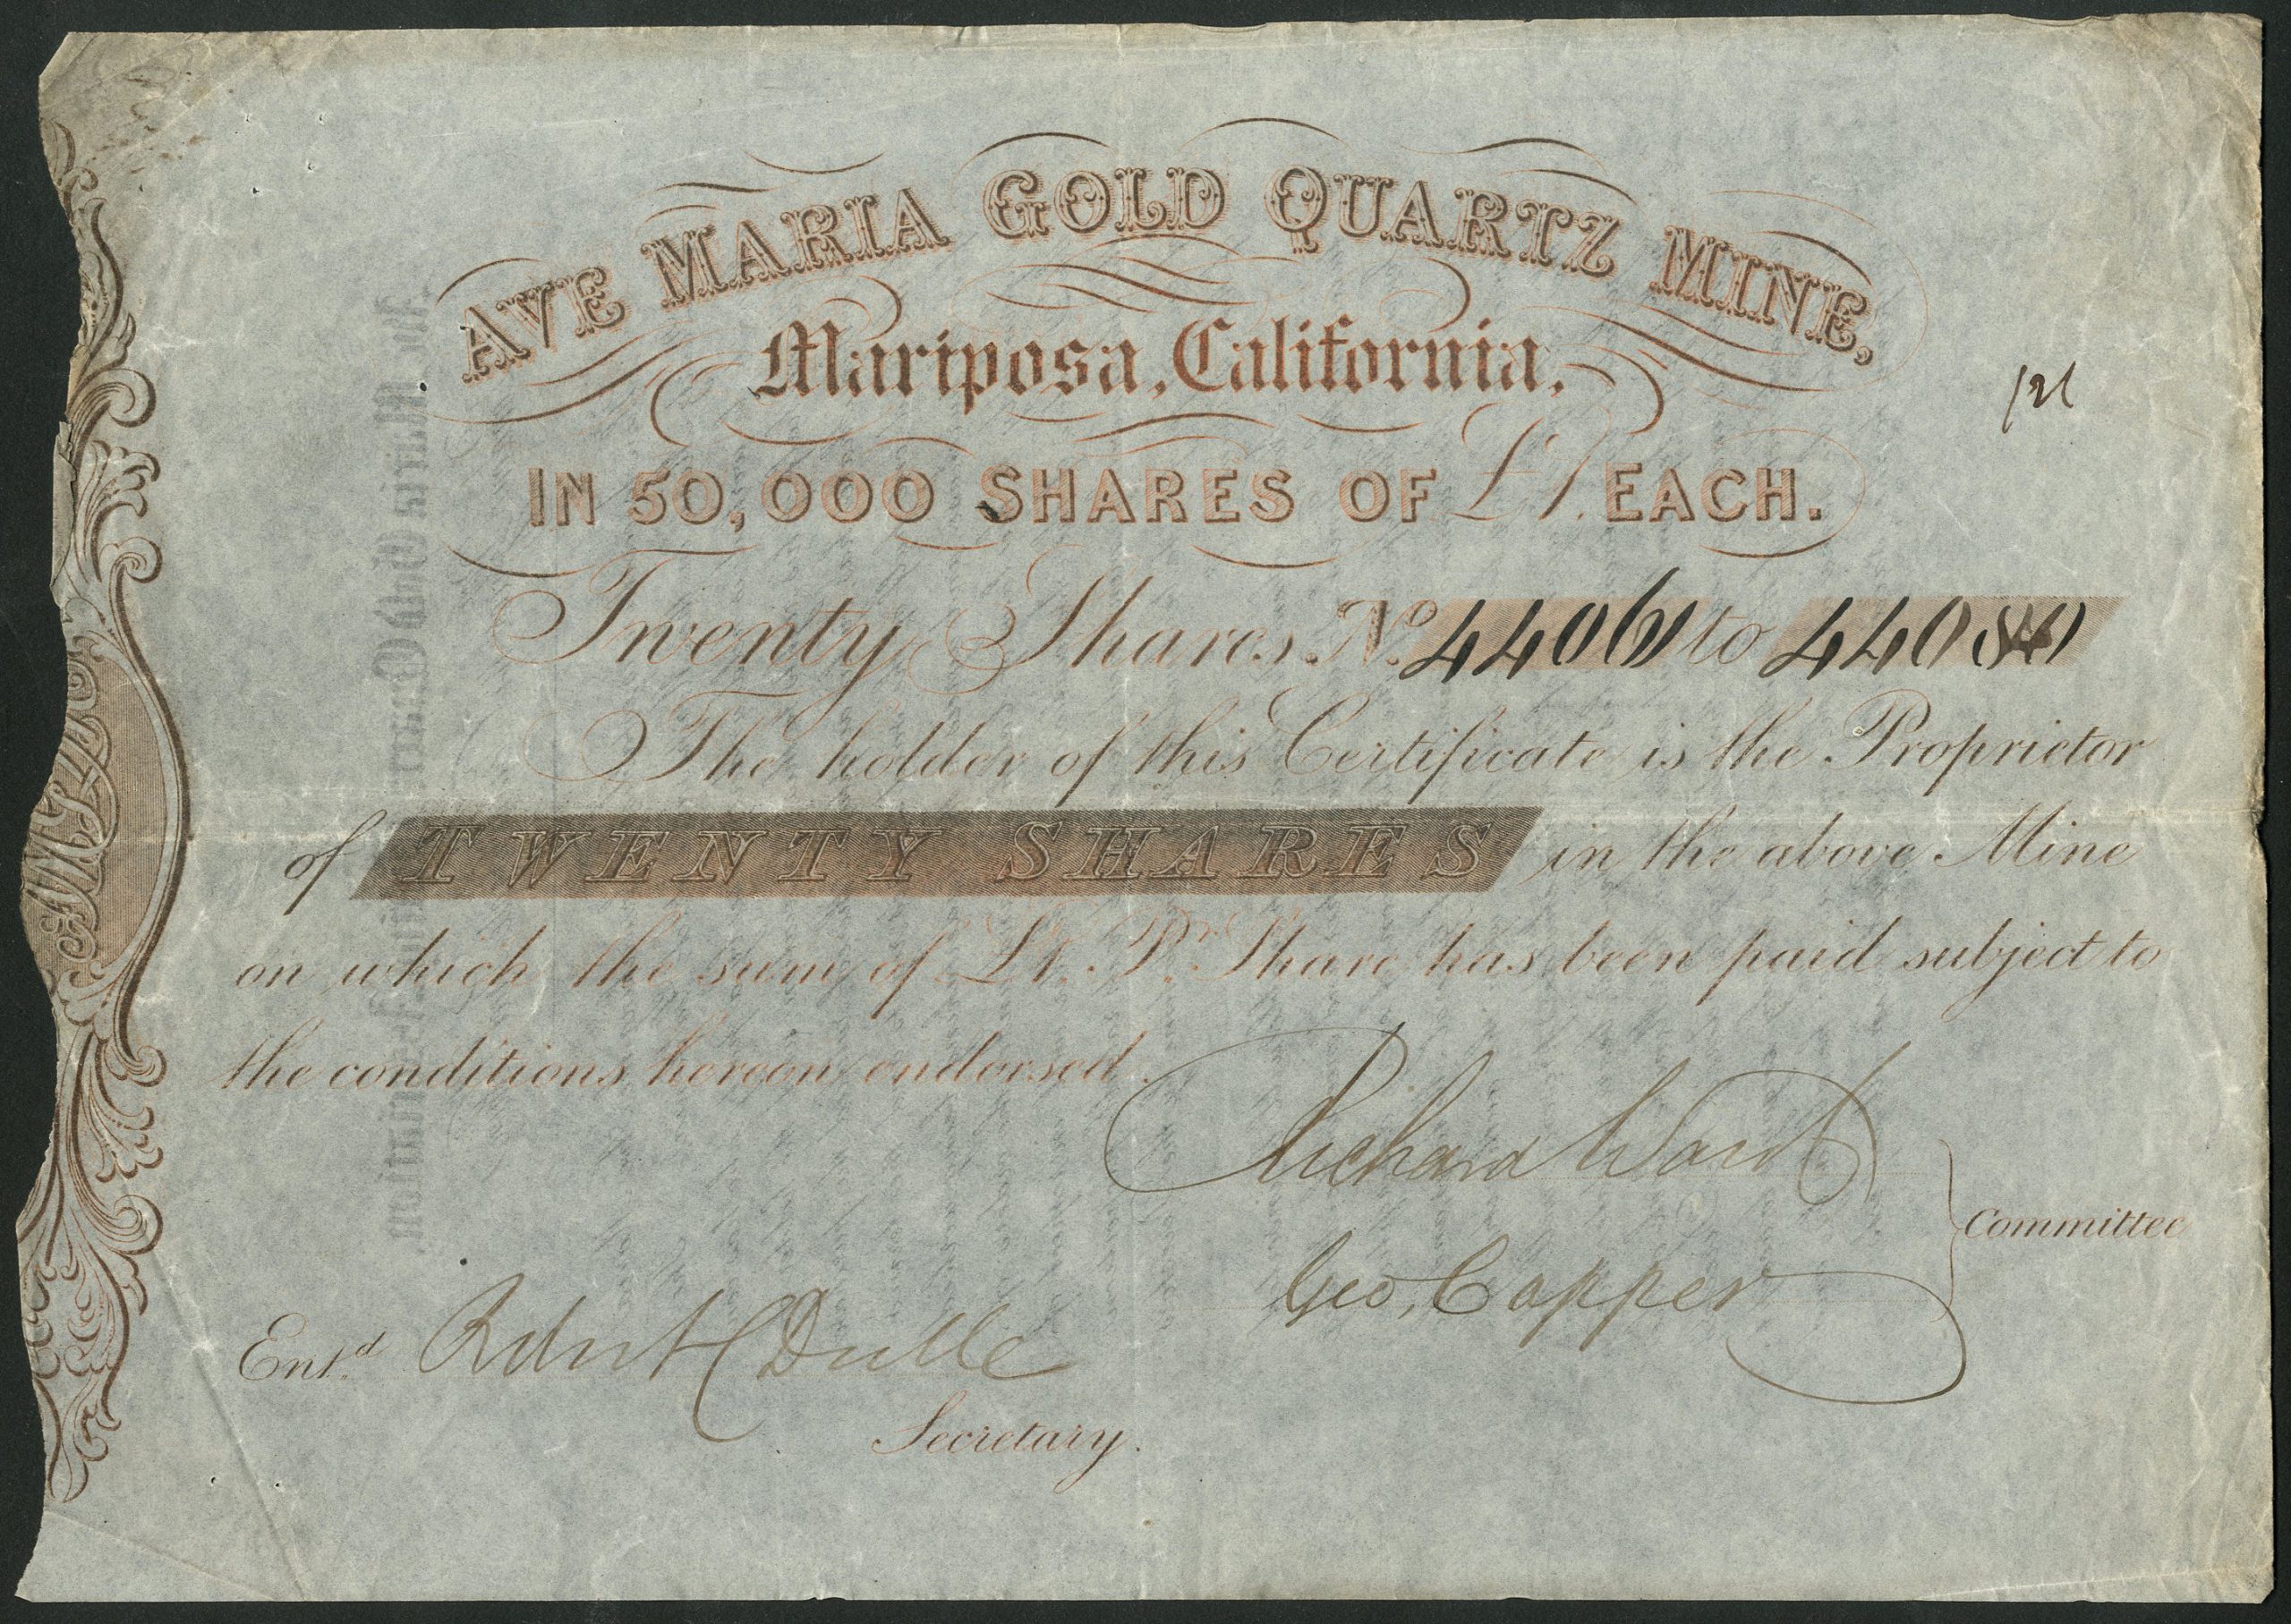 AVE MARIA GOLD QUARTZ MINE,
Mariposa, California,
IN 50,000 SHARES OF £1. EACH.
Twenty Shares. No. 44061 to 44080
The holder of this Certificate is the Proprietor
of TWENTY SHARES in the above Mine
on which the sum of £1. Pr. Share has been paid subject to
the conditions hereon endorsed.
Richard Ward
Geo. Capper
Committee
Entd. Robert
Secretary.